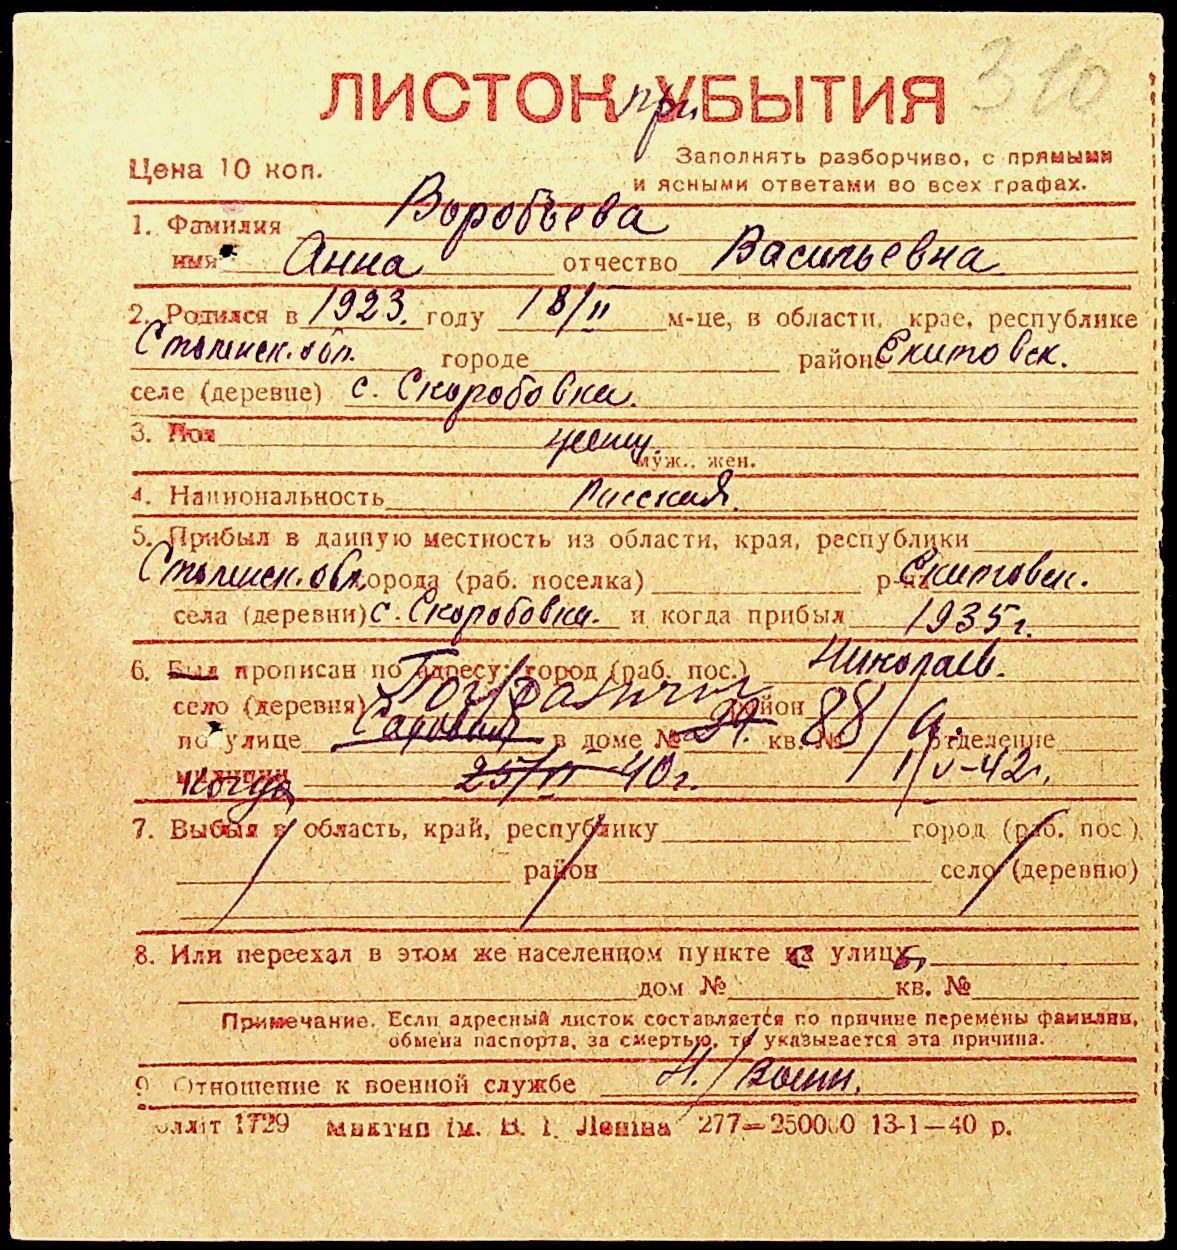 310
ЛИСТОК УБЫТИЯ
при
Цена 10 коп.
Заполнять разборчиво, с прямыми
и ясными ответами во всех графах.
1. Фамилия Воробьева
имя Анна отчество Васильевна
2. Родился в 1923. году 18/II м-це, в области, крае, республике
Смоленск. обл. городе районе Екитовск.
селе (деревне) с. Скоробовка.
3. Пол женщ.
муж., жен.
4. Национальность Русская.
5. Прибыл в данную местность из области, края, республики
Смоленск. обл. города (раб. поселка) р-на Екитовск.
села (деревни) с. Скоробовка. и когда прибыл 1935 г.
6. Был прописан по адресу: город (раб. пос.) Николаев.
село (деревня) район
по улице Садовая в доме № 29. кв. № 88/9. отделение
милиции когда 25/VI-40 г. 1/V-42 г.
7. Выбыл в область, край, республику город (раб. пос.)
район село (деревню)
8. Или переехал в этом же населенном пункте на улицу
дом № кв. №
Примечание. Если адресный листок составляется по причине перемены фамилии,
обмена паспорта, за смертью, то указывается эта причина.
9 Отношение к военной службе Н./Воен.
1729 Миктип ім. В. І. Леніна 277—250000 13-1—40 р.